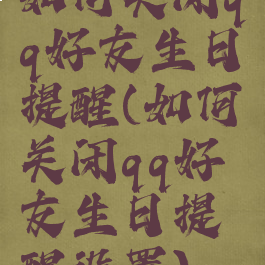 如何关闭q
q好友生日
提醒(如何
关闭qq好
友生日提
醒设置)